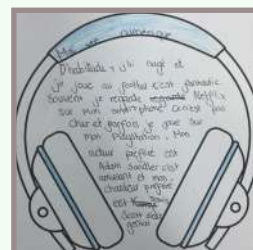 Ma vie numérique
D'habitude, j'ai nagé et
je joue au footba c'est fantastic
Souvent je regarde Netflix
sur mon smartphone Ce n'est pas
Cher et parfois je joue sur
mon Playstation. Mon
acteur préféré est
Adam Sandler c'est
amusant et mon
chanteur préféré
est
Scott
génial